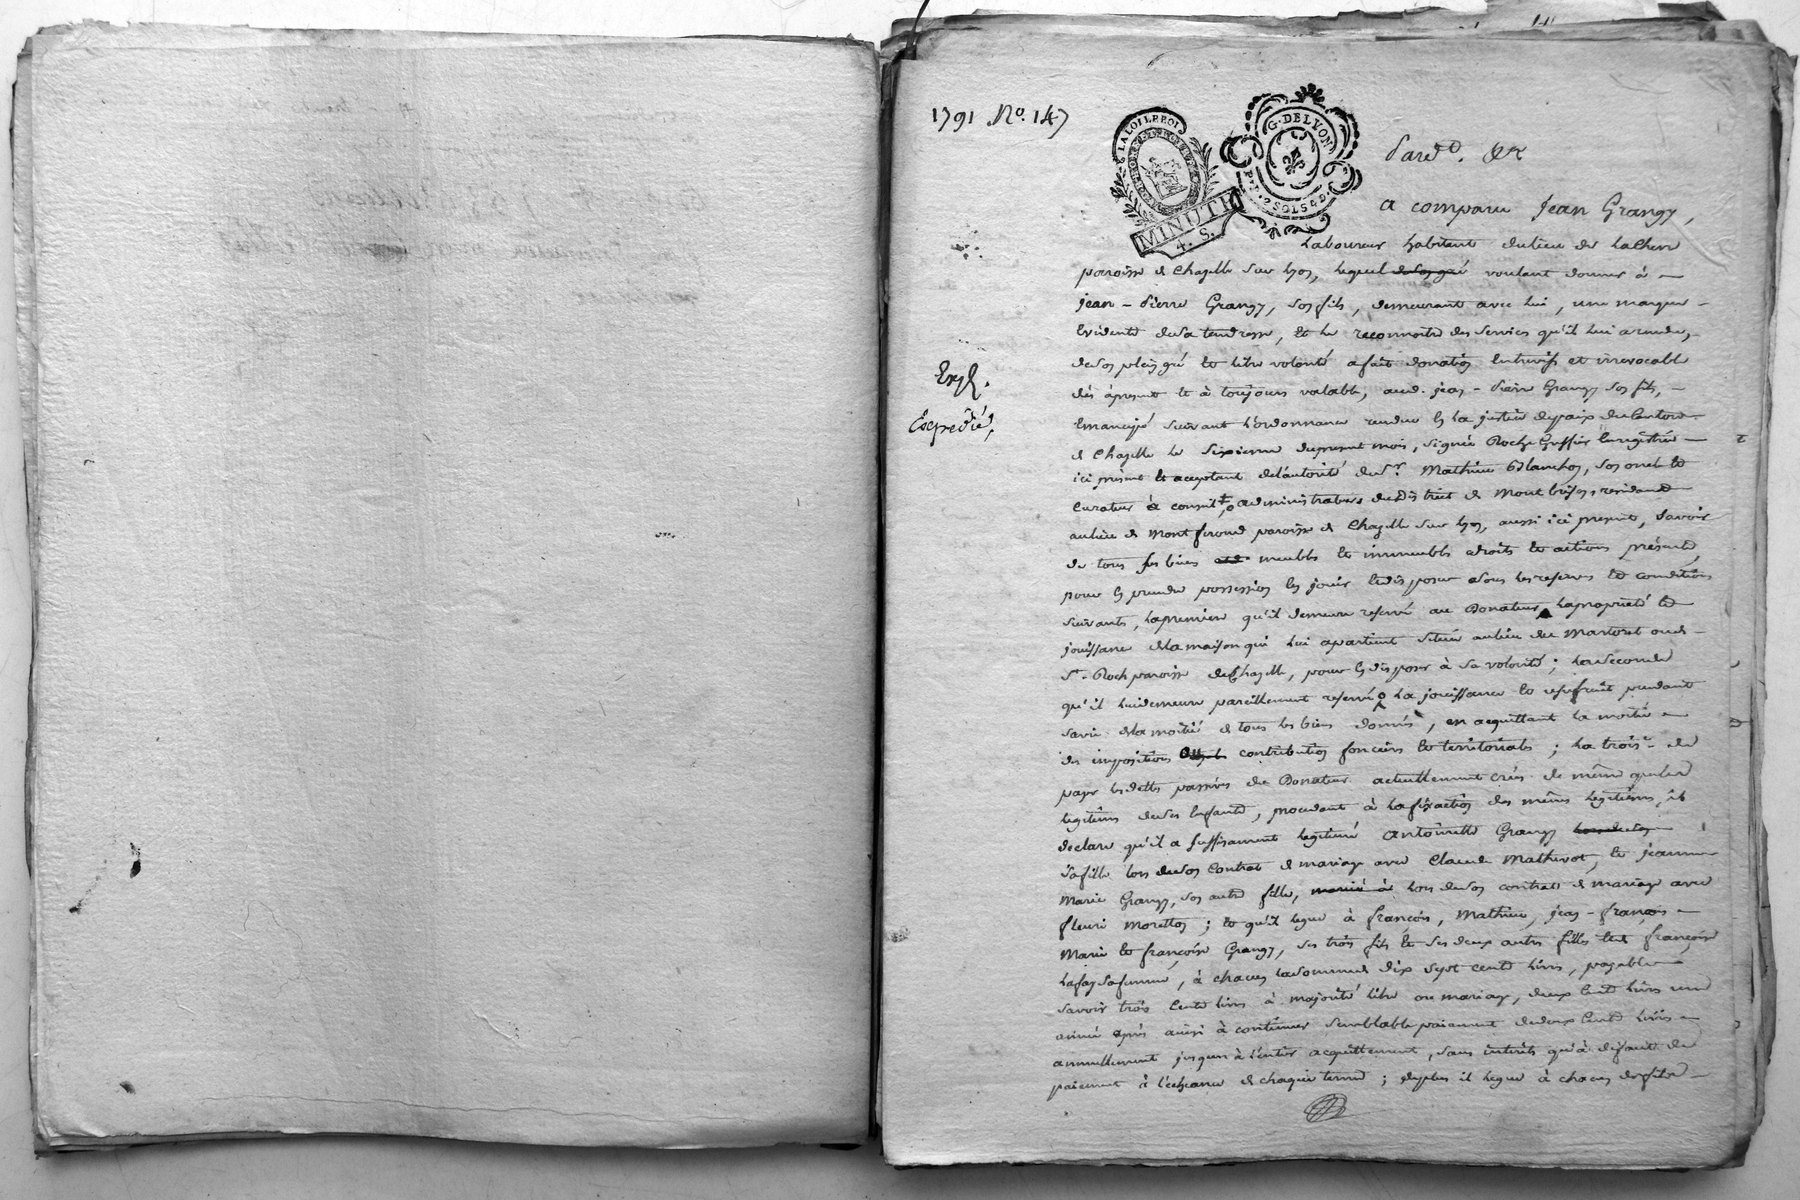 1791 No. 147
LA LOI LE ROI
MINUTE
4. S.
G. DE LYON
P.P. 2 SOLS 4 D.
Pard.
a comparu Jean Grangy,
Laboureur habitant du lieu de
paroisse de Chazelle sur Lyon, lequel voulant donner à
jean - Pierre Grangy, son fils, demeurant avec lui, une marque
Evidente de sa tendresse, et le reconnoitre des services qu'il lui a rendu,
de son plein gré et libre volonté a fait donation Entrevifs et irrevocable
dès àpresent et à toujours valable, aud. jean - Pierre Grangy son fils,
Emancipé suivant L'ordonnance rendue En La justice de paix du Canton
de Chazelle le Sixieme du present mois, signée Roche Greffier Enregistrée
ici present et acceptant de L'autorité du Sr. Mathieu Blanchon, son oncle et
Curateur à conseil, administrateur du District de Montbrison residant
au lieu de Montferond paroisse de Chazelle sur Lyon, aussi ici present, Savoir
de tous ses biens meubles et immeubles droits et actions présents,
pour En prendre possession En jouir Et disposer sous Les reserves et conditions
suivants, La premiere qu'il demeure reservé au Donateur La proprieté et
jouissance de la maison qui lui apartient située au lieu du Martoret ou de
St. Roch paroisse de Chazelle, pour En disposer à sa volonté ; La seconde
qu'il lui demeure pareillement reservé La jouissance et usufruit pendant
sa vie de la moitié de tous les biens donnés, en acquittant la moitié
des impositions contributions foncieres et territoriales ; La trois.e de
payer les dettes passives du Donateur actuellement créés de même que les
legitimes de ses Enfants, procedant à la fixation des mêmes legitimes, il
declare qu'il a suffisament legitimé antoinette Grangy
sa fille lors de son Contrat de mariage avec Claude Mathevot, et jeanne
Marie Grangy, son autre fille, lors de son contrat de mariage avec
fleuri Moretton ; et qu'il legue à françois, Mathieu, jean - françois
Marie et françoise Grangy, ses trois fils et ses deux autres filles et de françoise
Lafay sa femme, à chacun la somme de dix sept cents livres, payable
savoir trois Cents livres à majorité libre ou mariage, deux Cents livres une
année après ainsi à continuer semblable paiement de deux Cents livres
annuellement jusques à L'entier acquittement, sans interets qu'à defaut de
paiement à L'echeance de chaque terme ; deplus il legue à chacun de ses fils
Expédié,